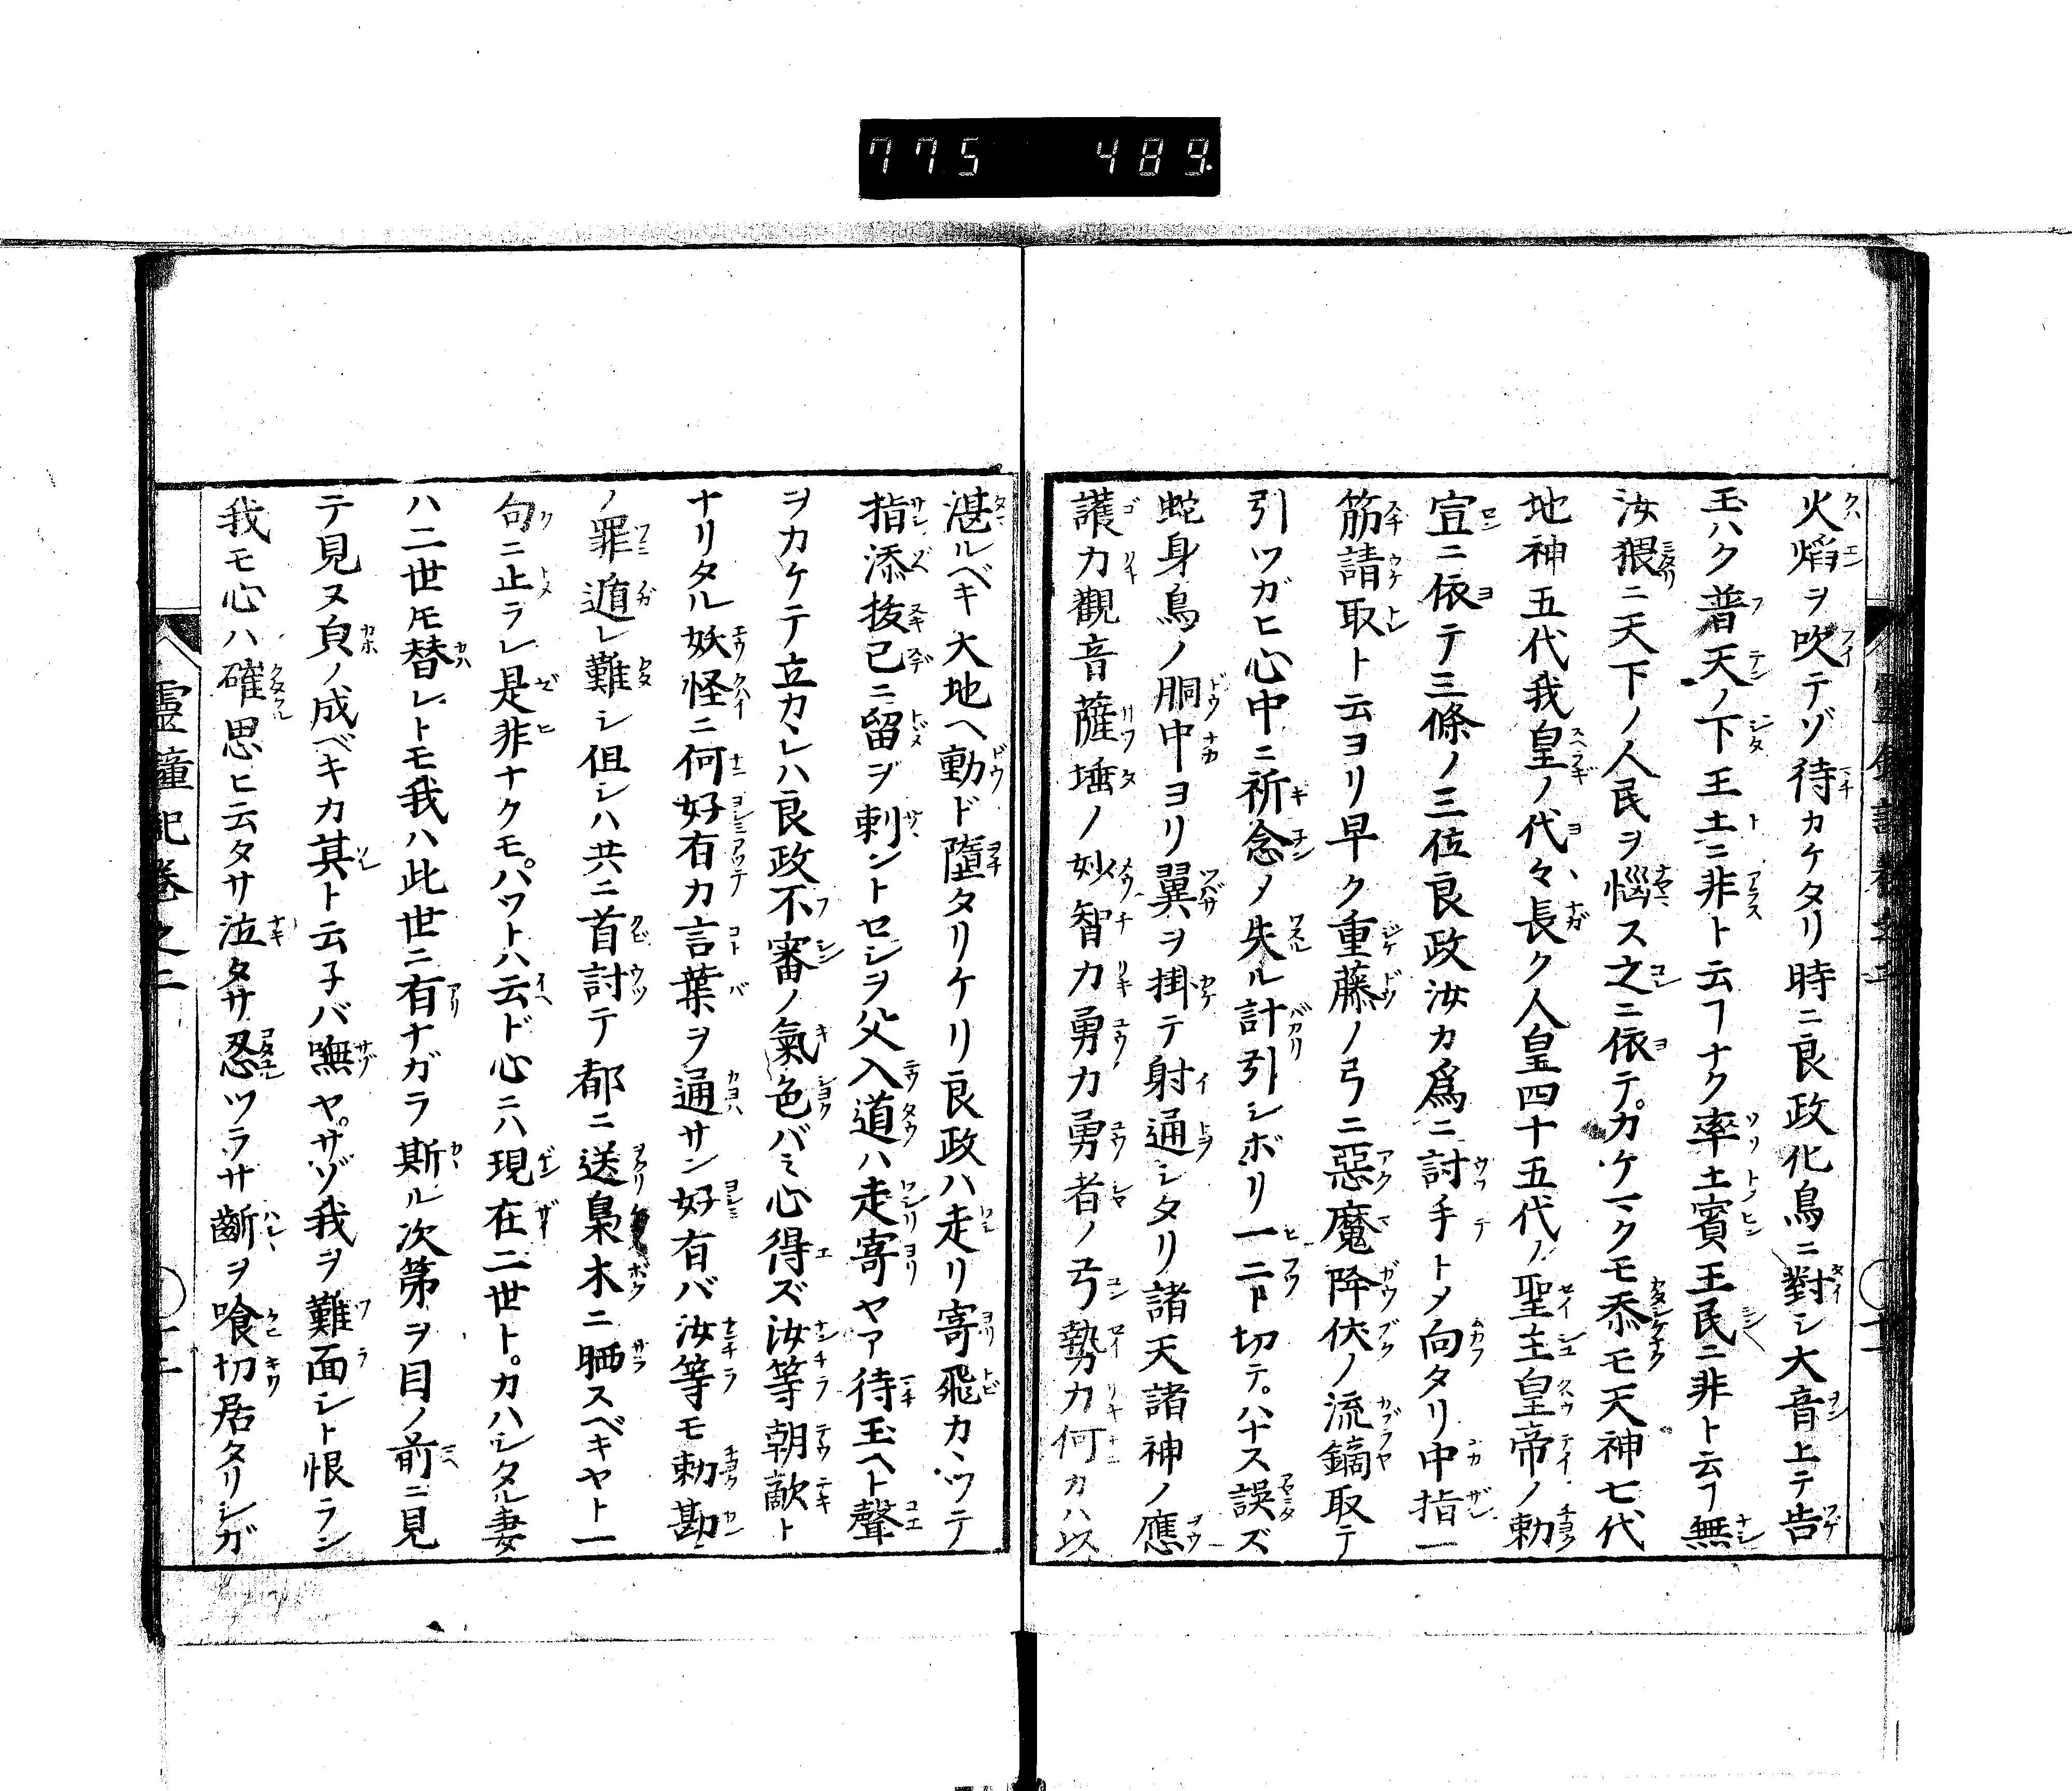 775 489
火焰ヲ吹テゾ待カケタリ時ニ良政化鳥ニ對シ大音上テ告
玉ハク普天ノ下王土ニ非ト云フナク率土賓王民ニ非ト云フ無
汝猥ニ天下ノ人民ヲ惱ス之ニ依テカケマクモ忝モ天神七代
地神五代我皇ノ代々長ク人皇四十五代ノ聖主皇帝ノ勅
宣ニ依テ三條ノ三位良政汝カ爲ニ討手トメ向タリ中指一
筋請取ト云ヨリ早ク重藤ノ弓ニ惡魔降伏ノ流鏑取テ
引ツガヒ心中ニ祈念ノ失ル計引シボリ一二ト切テハナス誤ズ
蛇身鳥ノ胴中ヨリ翼ヲ掛テ射通シタリ諸天諸神ノ應
護力觀音薩埵ノ妙智力勇力勇者ノ弓勢力何カハ以
湛ルベキ大地ヘ動ド墮タリケリ良政ハ走リ寄飛カヽツテ
指添拔已ニ留ヲ刺ントセシヲ父入道ハ走寄ヤア待玉ヘト聲
ヲカケテ立カヽレハ良政不審ノ氣色バミ心得ズ汝等朝敵ト
ナリタル妖怪ニ何好有カ言葉ヲ通サン好有バ汝等モ勅勘
ノ罪遁レ難シ但シハ共ニ首討テ都ニ送梟木ニ晒スベキヤト一
句ニ止ラレ是非ナクモハツトハ云ド心ニハ現在二世トカハシタル妻
ハ二世モ替レトモ我ハ此世ニ有ナガラ斯ル次第ヲ目ノ前ニ見
テ見ヌ皃ノ成ベキカ其ト云子バ嘸ヤサゾ我ヲ難面シト恨ラン
我モ心ハ確思ヒ云タサ泣タサ忍ツラサ齗ヲ喰切居タリシガ
靈鐘記卷之二